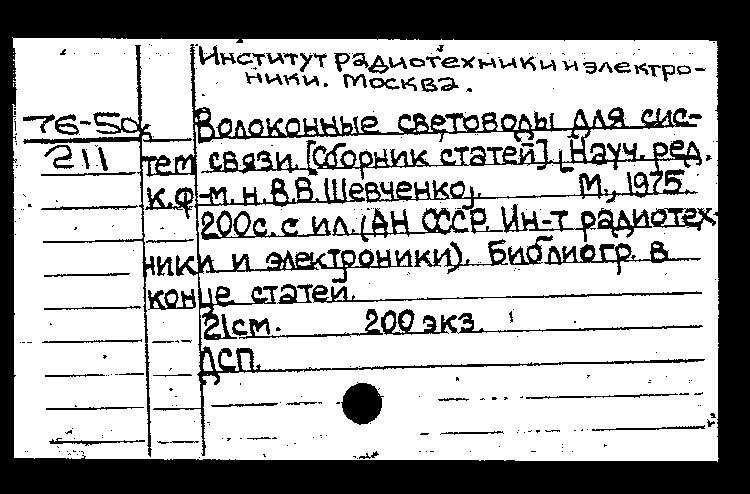 Институт радиотехники и электро-
ники. Москва.
76-50с
211
Волоконные световоды для сис-
тем связи. [Сборник статей]. [Науч. ред.
к.ф-м.н. В.В. Шевченко]. М., 1975.
200с. с ил. (АН СССР. Ин-т радиотех-
ники и электроники). Библиогр. в
конце статей.
21см. 200 экз.
ДСП.